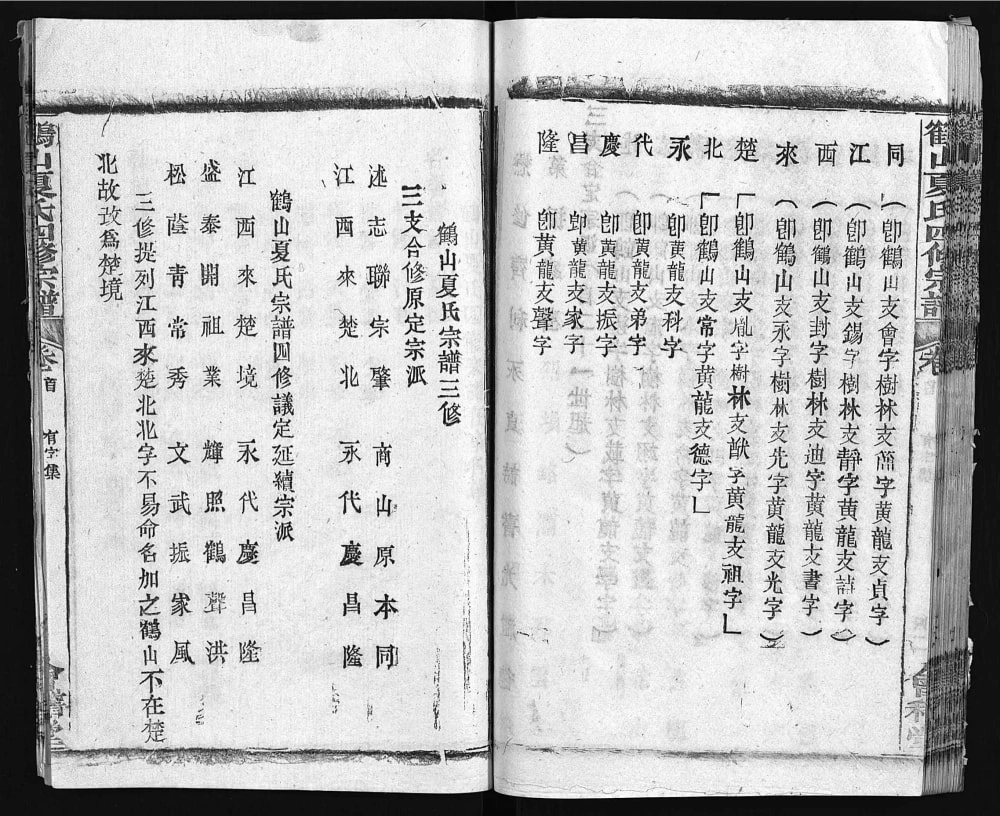 鶴山夏氏四修宗譜
卷首
同 （卽鶴山支會字樹林支蕳字黄龍支貞字）
江 （卽鶴山支錫字樹林支靜字黄龍支譜字）
西 （卽鶴山支封字樹林支迪字黄龍支書字）
來 （卽鶴山支永字樹林支先字黄龍支光字）
楚 「卽鶴山支胤字樹林支猷字黄龍支祖字」
北 「卽鶴山支常字黄龍支德字」
永 卽黄龍支科字
代 卽黄龍支弟字
慶 卽黄龍支振字
昌 卽黄龍支家字
隆 卽黄龍支聲字
鶴山夏氏宗譜三修
三支合修原定宗派
述志聯宗肇 南山原本同
江西來楚北 永代慶昌隆
鶴山夏氏宗譜四修議定延續宗派
江西來楚境 永代慶昌隆
盛泰開祖業 輝照鶴聲洪
松蔭青常秀 文武振家風
三修提列江西來楚北北字不易命名加之鶴山不在楚
北故改爲楚境
鶴山夏氏四修宗譜
卷首
有字集